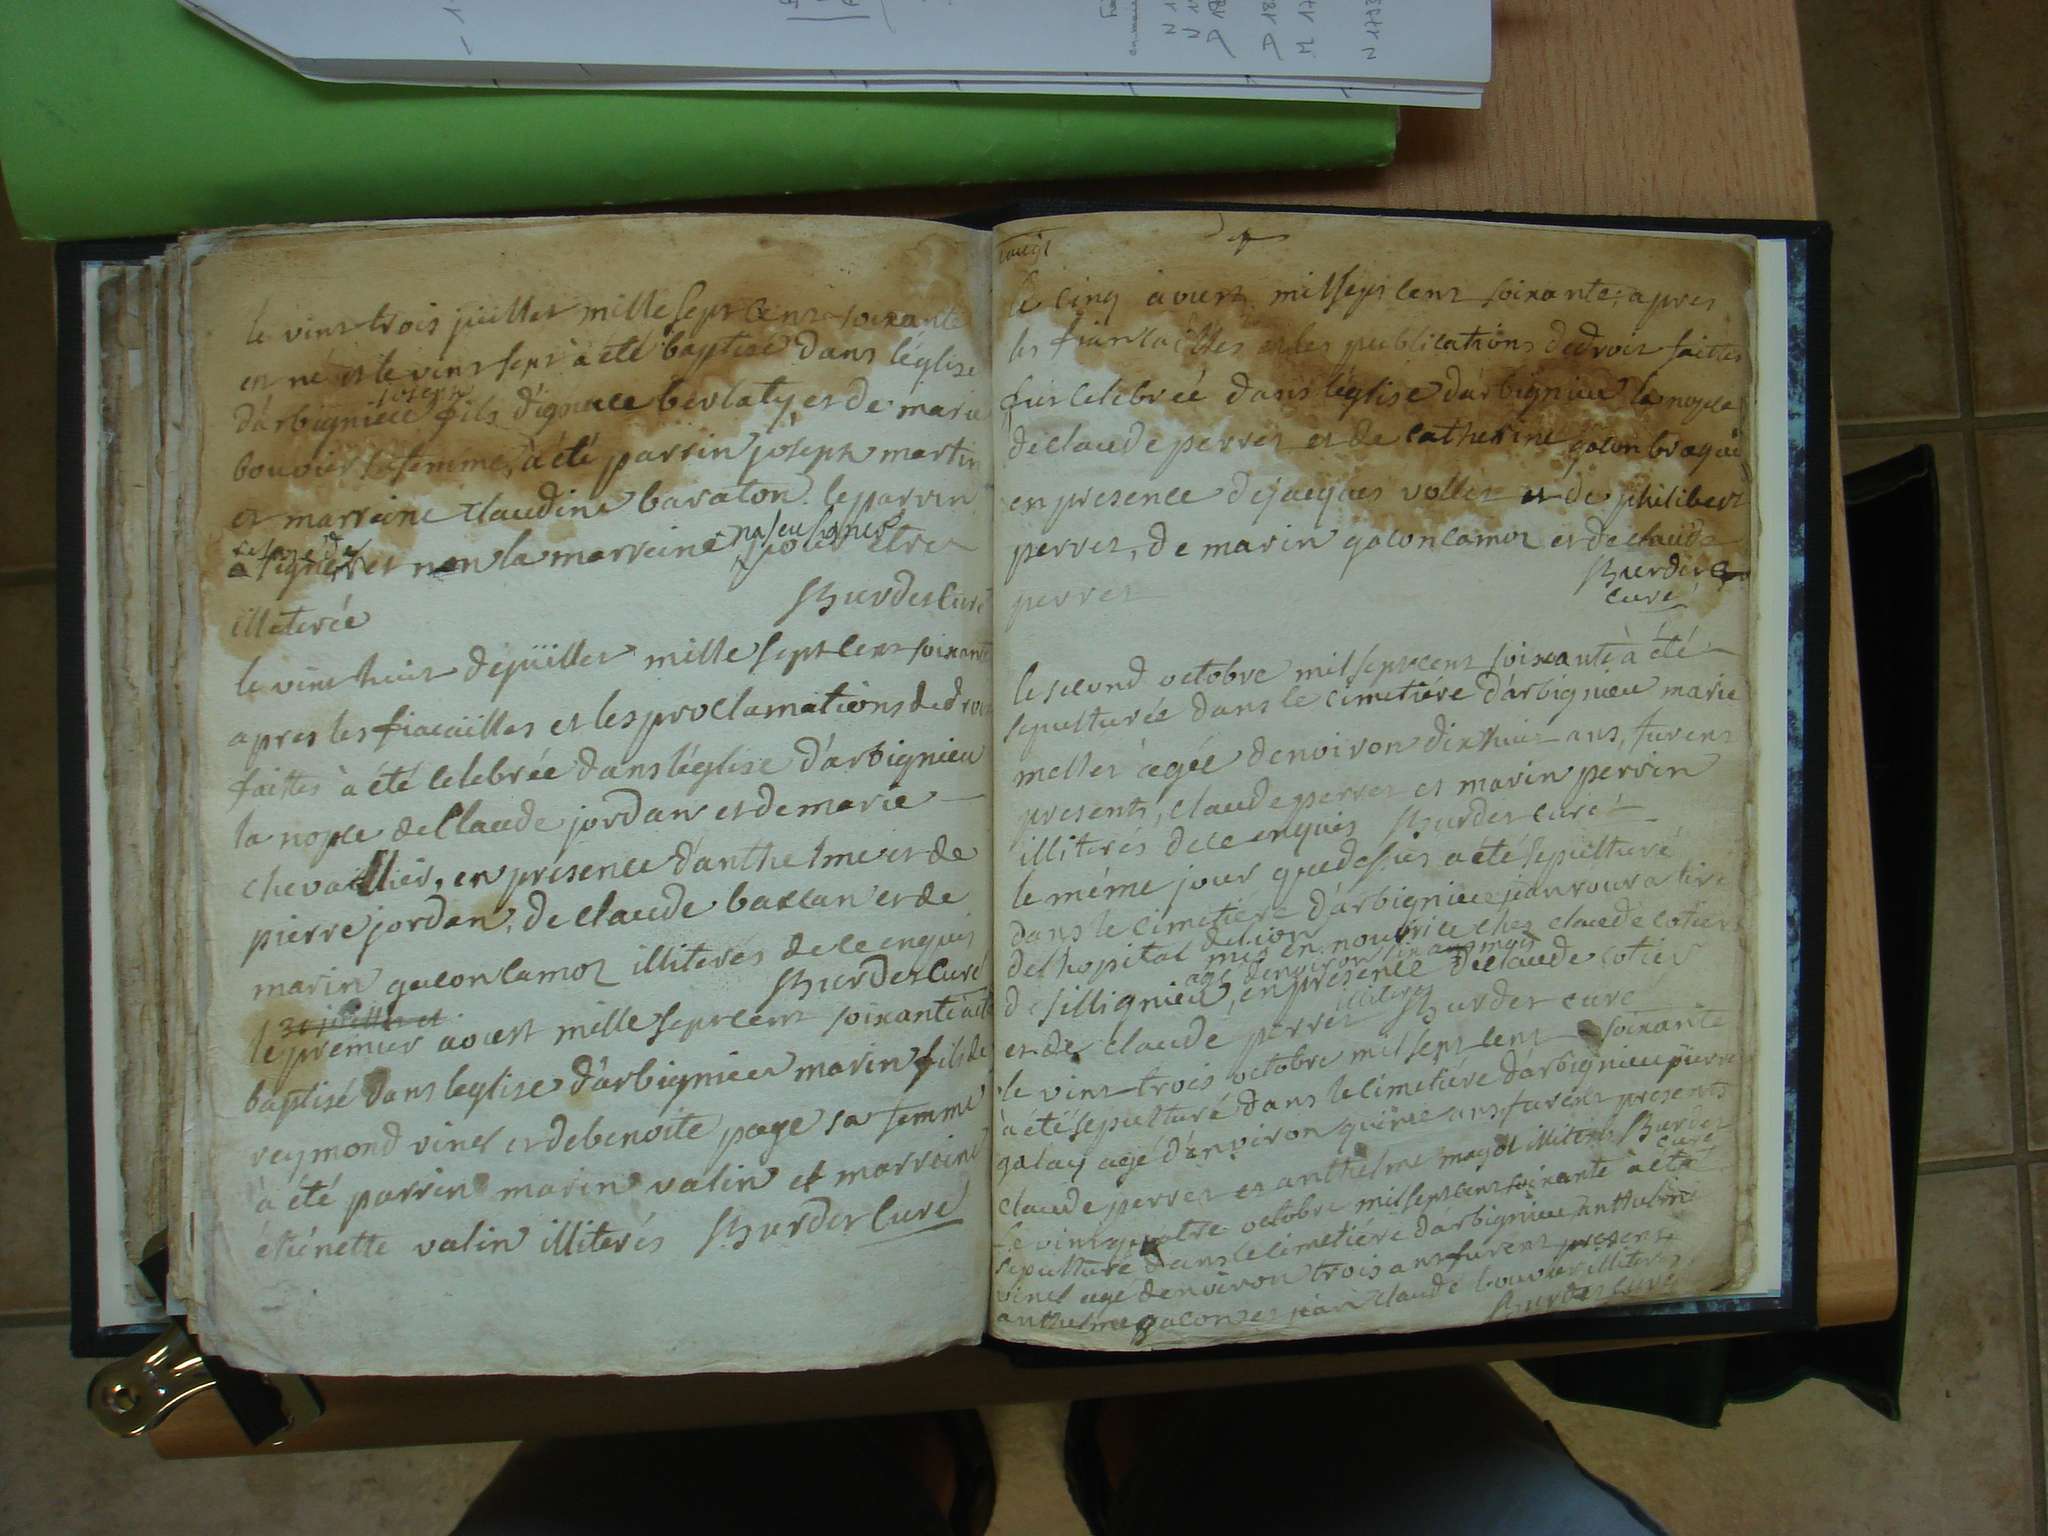 le vint trois jüillet mille sept cent soixante
est né et le vint sept a été baptisé dans léglise
joseph
d'arbignieu fils d'ignace berlaty et de marie
bouvier sa femme, à été parrin joseph martin
et marreine claudine baraton. le parrin
a signé et non la marreine pour etre
illiterée
hurder Curé
le vint huit de jüillet mille sept cent soixante
apres les fiacailles et les proclamations de droit
faittes à été celebrée dans léglise d'arbignieu
la nopce de Claude jordan et de marie
chevallier, en presence d'anthelme et de
pierre jordan, de claude baccan et de
marin gacon camoz illiterés de ce enquis
hurder Curé
30 juillet et
le premier aoust mille sept cent soixante a été
baptisé dans leglise d'arbignieu marin fils de
reymond vinet et de benoite page sa femme
à été parrin marin valin et marreine
étiénette valin illiterés hurder Curé
le cinq aoust mil sept cent soixante, apres
les fiancailles et les publications de droit faittes
fut celebrée dans léglise d'arbignieu la nopce
de claude perret et de catherine gacon
en presence de jacques vollet et de philibert
perret, de marin gacon camoz et de claude
perret
hurder
curé
le second octobre mil sept cent soixante à été
sepulturée dans le cimetiére d'arbignieu marie
mettet agée denviron dix huit ans, furent
presents, claude perret et marin perrin
illiterés de ce enquis hurder curé
le méme jour que desus a été sepulturé
dans le cimetiére d'arbignieu jean
de lhopital de lion mis en nourrice chez claude cotier
agé denviron six mois
de sillignieu, en presence de claude cotier
et de claude perret illiterés hurder curé
le vint trois octobre mil sept cent soixante
à été sepulturé dans le cimetiére d'arbignieu pierre
galay agé d'environ quinze ans furent presents
claude perret et anthelme magot illiterés hurder
curé
le vint quatre octobre mil sept cent soixante à été
sepulturé dans le cimetiére d'arbignieu anthelme
vinet agé denviron trois ans furent presents
anthelme gacon et jean claude bouvier illiterés
hurder curé